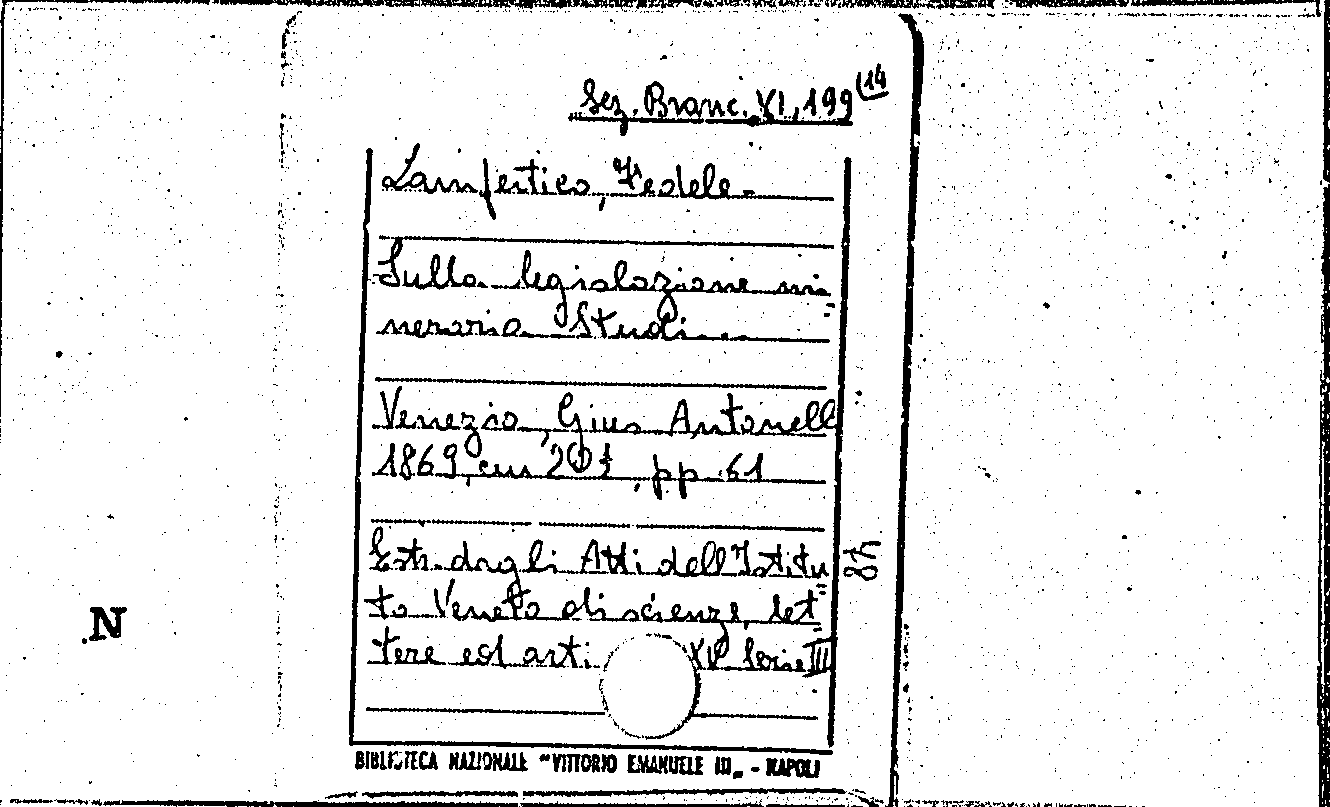 Sez. Branc. XI, 199 (14
Lampertico, Fedele -
Sulla legislazione mi=
neraria Studi...
Venezia, Gius Antonell
1869, cm 20, pp. 61
Estr. dagli Atti dell'Istitu=
to Veneto di scienze, let=
tere ed arti XV Serie III
N
BIBLIOTECA NAZIONALE "VITTORIO EMANUELE III„ - NAPOLI